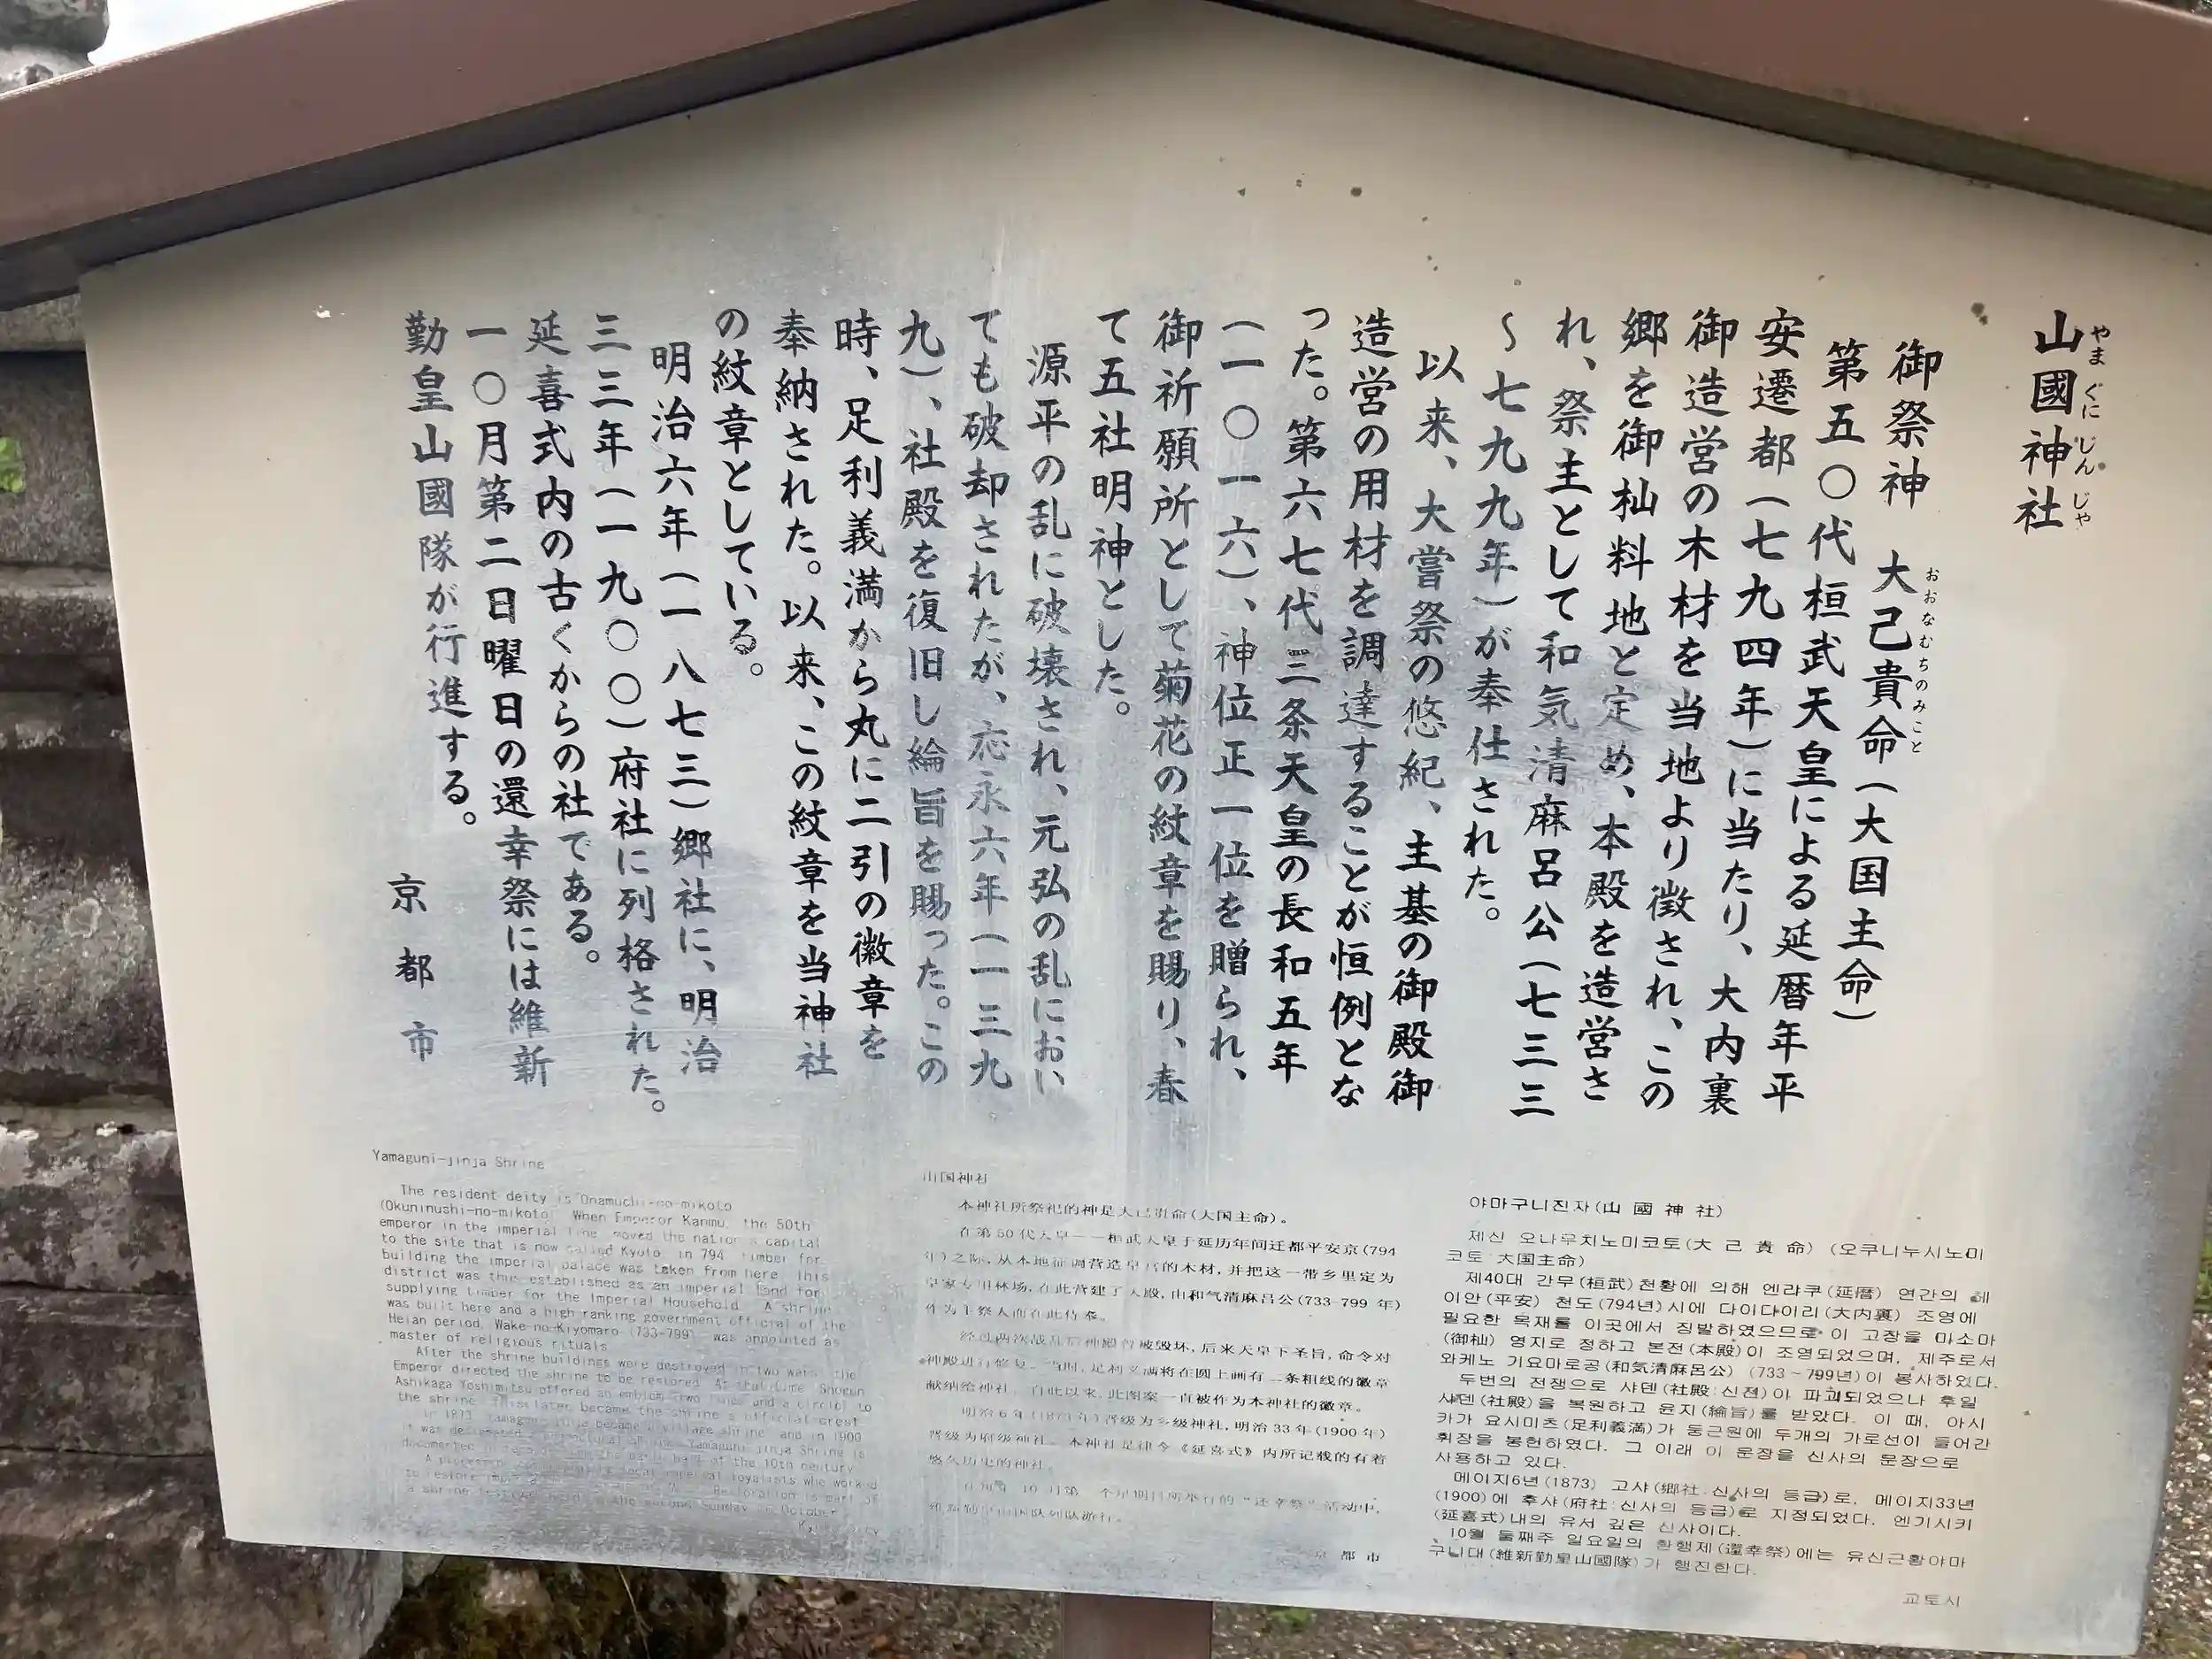 山國神社
やま ぐに じん じゃ
御祭神　大己貴命（大国主命）
おおなむちのみこと
第五〇代桓武天皇による延暦年平
安遷都（七九四年）に当たり、大内裏
御造営の木材を当地より徴され、この
郷を御杣料地と定め、本殿を造営さ
れ、祭主として和気清麻呂公（七三三
～七九九年）が奉仕された。
以来、大嘗祭の悠紀、主基の御殿御
造営の用材を調達することが恒例とな
った。第六七代三条天皇の長和五年
（一〇一六）、神位正一位を贈られ、
御祈願所として菊花の紋章を賜り、春
て五社明神とした。
源平の乱に破壊され、元弘の乱におい
ても破却されたが、応永六年（一三九
九）、社殿を復旧し綸旨を賜った。この
時、足利義満から丸に二引の徽章を
奉納された。以来、この紋章を当神社
の紋章としている。
明治六年（一八七三）郷社に、明治
三三年（一九〇〇）府社に列格された。
延喜式内の古くからの社である。
一〇月第二日曜日の還幸祭には維新
勤皇山國隊が行進する。
京都市
Yamaguni-jinja Shrine
The resident deity is Onamuchi-no-mikoto
(Okuninushi-no-mikoto) When Emperor Kanmu, the 50th
emperor in the imperial line, moved the nation's capital
to the site that is now called Kyoto in 794 timber for
building the imperial palace was taken from here This
district was thus established as an imperial land for
supplying timber for the Imperial Household A shrine
was built here and a high ranking government official of the
Heian period, Wake-no-Kiyomaro (733-799) was appointed as
master of religious rituals
After the shrine buildings were destroyed in two wars the
Emperor directed the shrine to be restored At that time Shogun
Ashikaga Yoshimitsu offered an emblem (two lines and a circle) to
the shrine This later became the shrine's official crest
In 1873 Yamaguni-jinja became a village shrine and in 1900
it was Yamaguni-jinja Shrine is
the early half of the 10th century
A procession local imperial loyalists who worked
to restore Restoration is part of
a shrine the second Sunday in October
山国神社
本神社所祭祀的神是大己贵命(大国主命)。
在第50代天皇——桓武天皇于延历年间迁都平安京(794
年)之际,从本地征调营造皇宫的木材,并把这一带乡里定为
皇家专用林场,在此营建了大殿,由和气清麻吕公(733-799 年)
作为主祭人而在此侍奉。
经过两次战乱后神殿曾被毁坏,后来天皇下圣旨,命令对
神殿进行修复。当时,足利义满将在圆上画有二条粗线的徽章
献纳给神社。自此以来,此图案一直被作为本神社的徽章。
明治6年(1873年)晋级为乡级神社,明治33年(1900年)
晋级为府级神社。本神社是律令《延喜式》内所记载的有着
悠久历史的神社。
在每年 10 月第二个星期日所举行的“还幸祭”活动中,
维新勤皇山国队列队游行。
京都市
야마구니진자(山國神社)
제신 오나무치노미코토(大己貴命) (오쿠니누시노미
코토 大国主命)
제40대 간무(桓武)천황에 의해 엔랴쿠(延暦) 연간의 헤
이안(平安) 천도(794년)시에 다이다이리(大内裏) 조영에
필요한 목재를 이곳에서 징발하였으므로 이 고장을 미소마
(御杣) 영지로 정하고 본전(本殿)이 조영되었으며, 제주로서
와케노 기요마로공(和気清麻呂公) (733~799년)이 봉사하였다.
두번의 전쟁으로 샤덴(社殿:신전)이 파괴되었으나 후일
샤덴(社殿)을 복원하고 윤지(綸旨)를 받았다. 이 때, 아시
카가 요시미츠(足利義満)가 둥근원에 두개의 가로선이 들어간
휘장을 봉헌하였다. 그 이래 이 문장을 신사의 문장으로
사용하고 있다.
메이지6년(1873) 고샤(郷社:신사의 등급)로, 메이지33년
(1900)에 후샤(府社:신사의 등급)로 지정되었다. 엔기시키
(延喜式)내의 유서 깊은 신사이다.
10월 둘째주 일요일의 환행제(還幸祭)에는 유신근황야마
구니대(維新勤皇山國隊)가 행진한다.
교토시